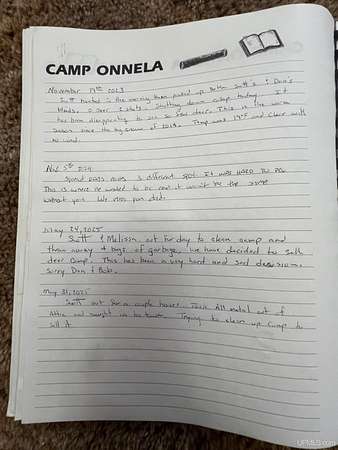 CAMP ONNELA
November 19th 2023
Scott hunted in the morning then packed up both Scott's & Don's
blinds. 0 deer 1 state. Shutting down camp today. It
has been disappointing to see so few deer. This is the worse
season since the big snows of 2013. Temp was 19°F and clear with
no wind.
Nov 5th 2024
Spread Dad's ashes 3 different spots. It was hard to do
This is where he wanted to be and it won't be the same
without you. Love miss you dad.
May 24, 2025
Scott & Melissa out for day to clean camp and
threw away 4 bags of garbage. We have decided to sell
deer camp. This has been a very hard and sad decision.
Sorry Don & Bob.
May 31, 2025
Scott out for a couple hours. Took all metal out of
Attic and brought us to town. Trying to clean up camp to
sell it
UPMLS.com